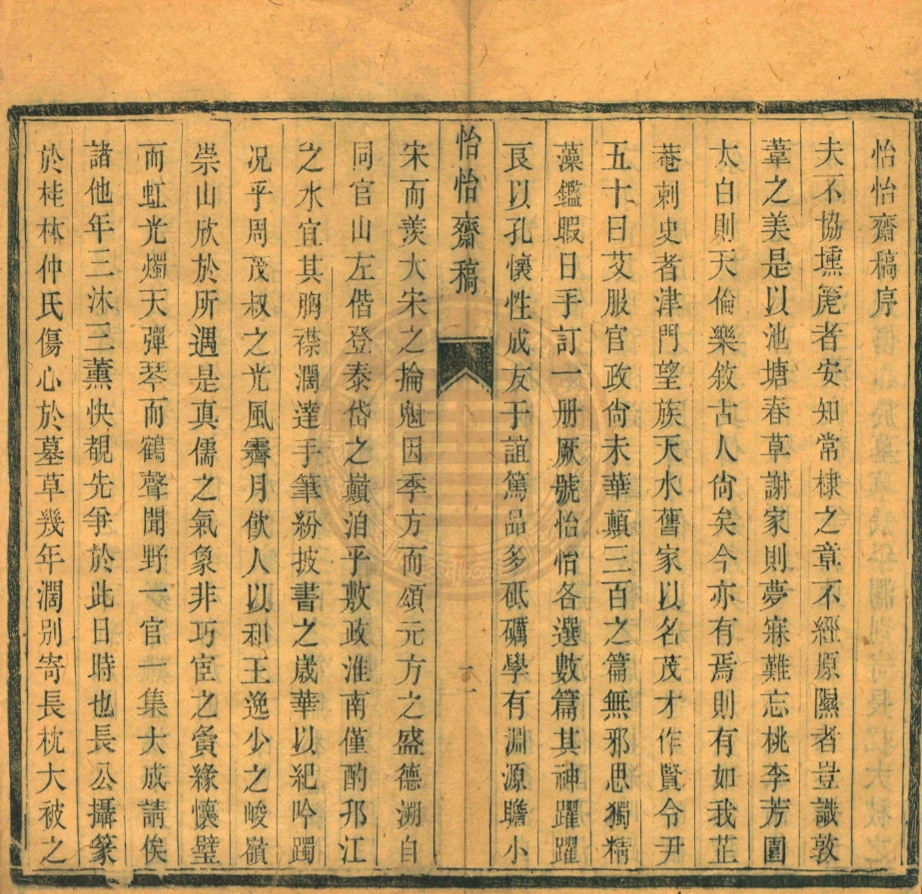 怡怡齋稿序
夫不協壎篪者安知常棣之章不經原隰者豈識敦
葦之美是以池塘春草謝家則夢寐難忘桃李芳園
太白則天倫樂敘古人尙矣今亦有焉則有如我芷
菴刺史者津門望族天水舊家以名茂才作賢令尹
五十曰艾服官政尙未華顛三百之篇無邪思獨精
藻鑑暇日手訂一册厥號怡怡各選數篇其神躍躍
良以孔懷性成友于誼篤品多砥礪學有淵源贍小
怡怡齋稿
一
宋而羨大宋之掄魁因季方而頌元方之盛德溯自
同官山左偕登泰岱之巔洎乎敷政淮南僅酌邗江
之水宜其胸襟濶達手筆紛披書之歲華以紀吟躅
况乎周茂叔之光風霽月飮人以和王逸少之峻嶺
崇山欣於所遇是真儒之氣象非巧宦之夤緣懷璧
而虹光燭天彈琴而鶴聲聞野一官一集大成請俟
諸他年三沐三薰快覩先爭於此日時也長公攝篆
於桂林仲氏傷心於墓草幾年濶别寄長枕大被之